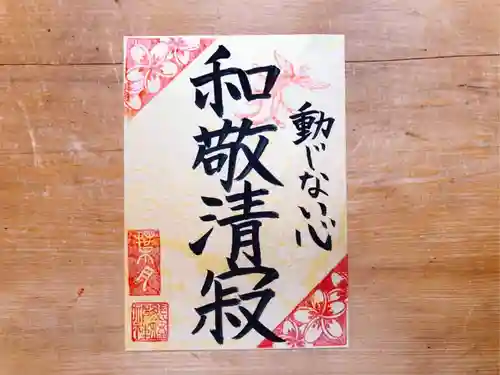 和敬清寂
動じない心
葉月